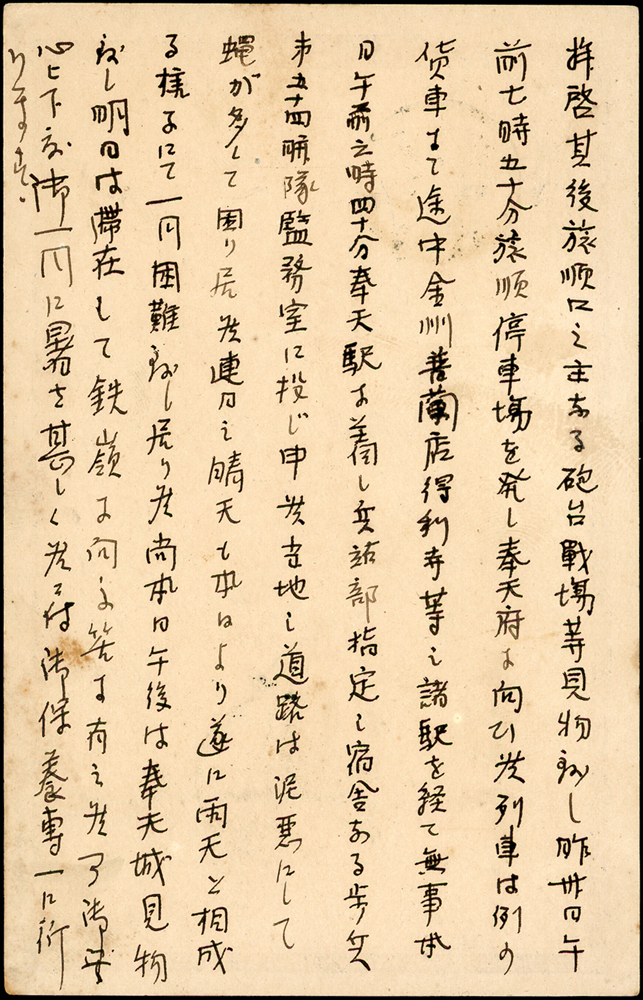 拝啓其後旅順口之主なる砲台戦場等見物致し昨卅日午
前七時五十分旅順停車場を発し奉天府に向ひ候列車は例の
貨車まて途中金州普蘭店得利寺等之諸駅を経て無事本
日午前六時四十分奉天駅に着し兵站部指定之宿舎なる歩兵
第五十四聯隊監務室に投じ申候当地之道路は泥悪にして
蝿が多くて困り居候連日之晴天も本日より遂に雨天と相成
る様子にて一同困難致し居り候尚本日午後は奉天城見物
致し明日は滞在して鉄嶺に向ふ筈に有之候間御安
心下度御一同に暑さ甚しく候に付御保養専一に祈
ります